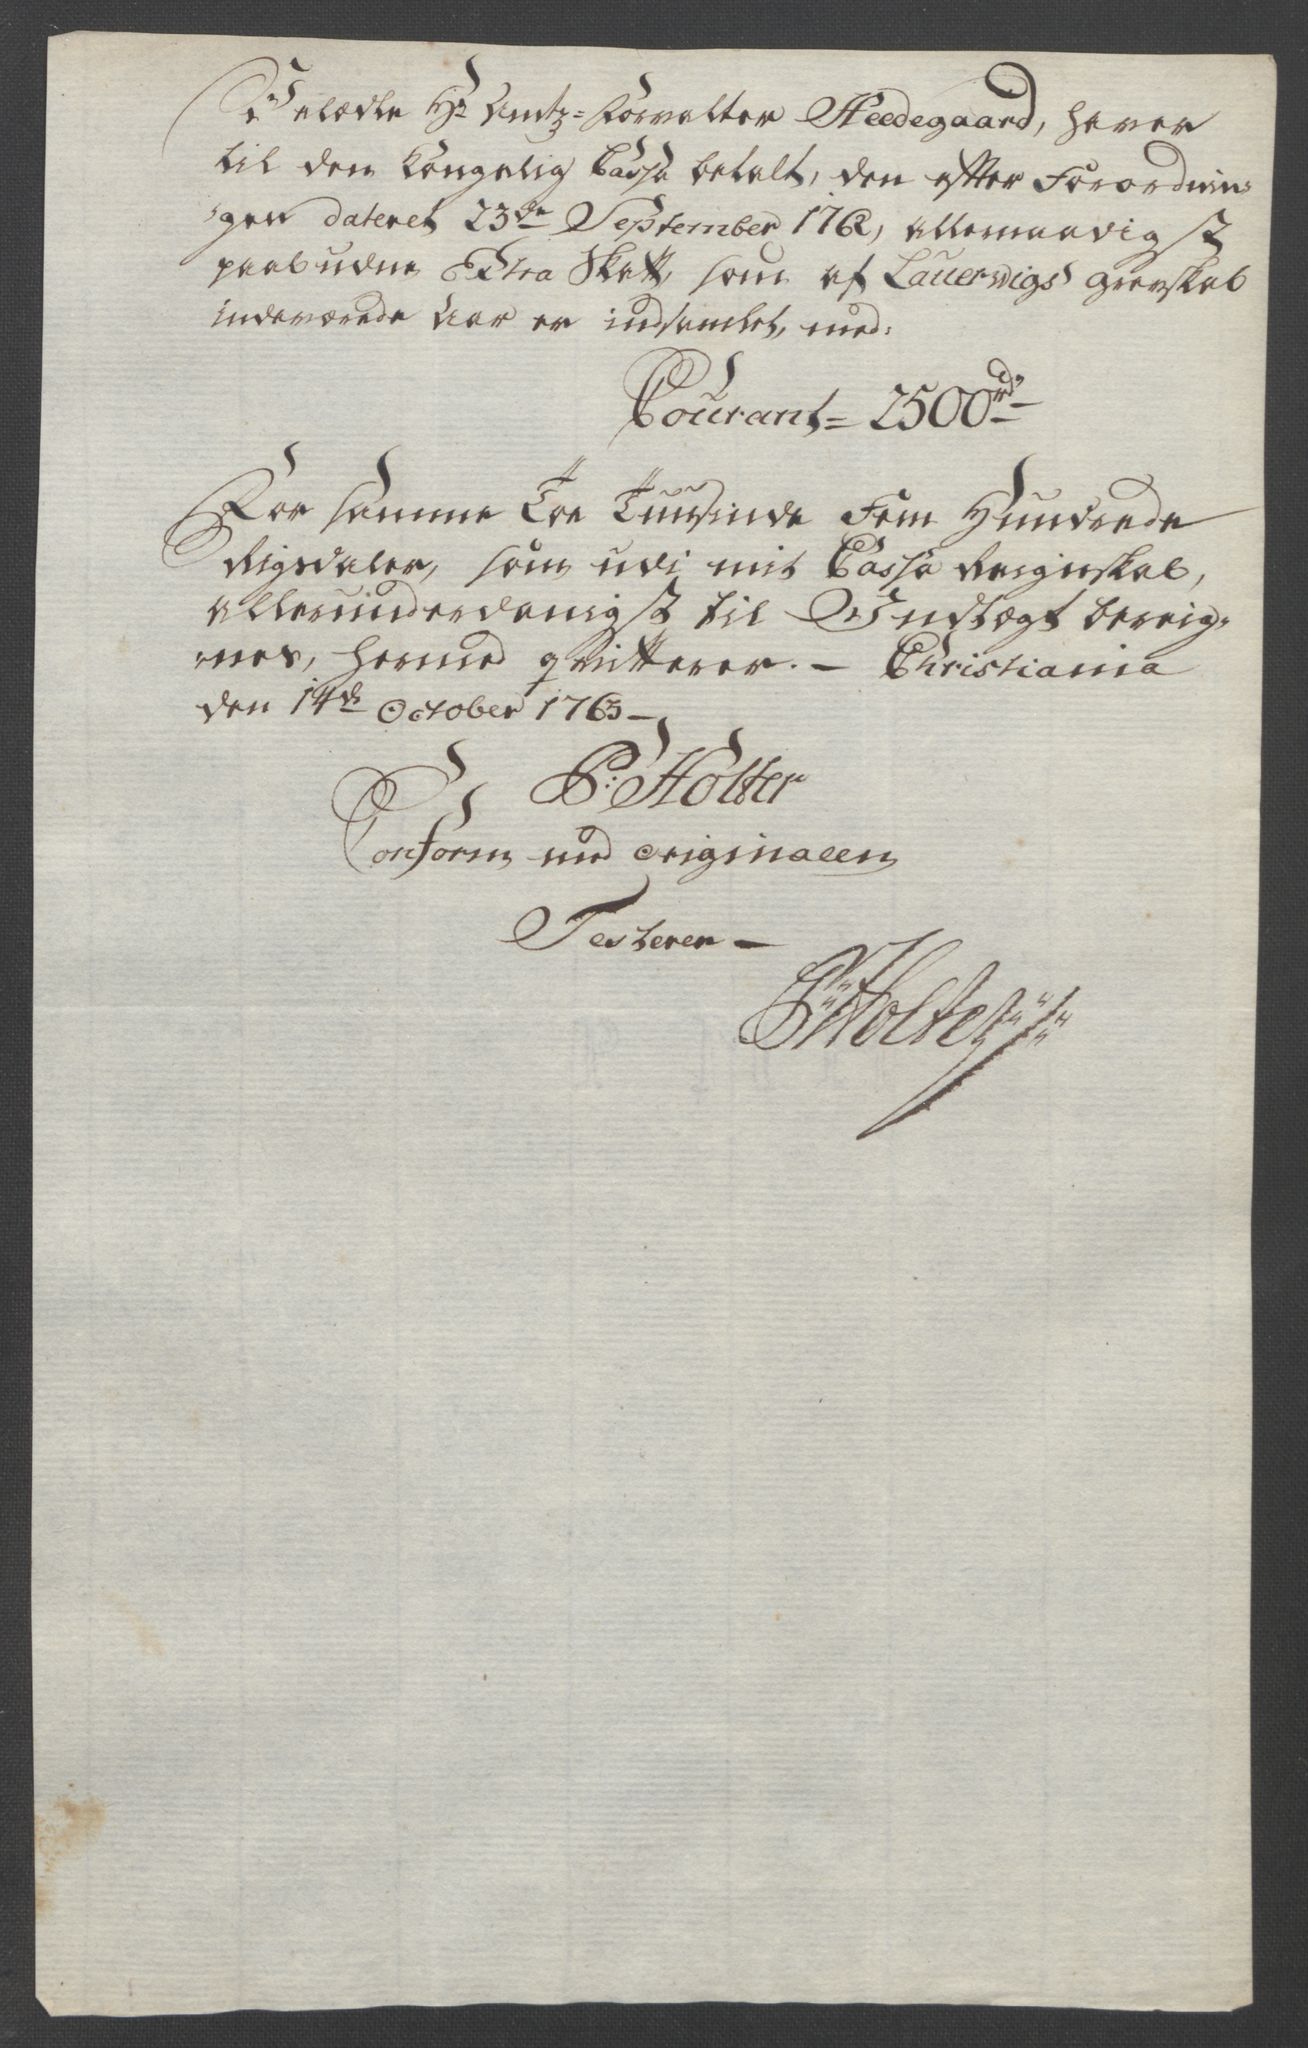 Velædle Hr Amtz-Forvalter Heedegaard, haver
til den Kongelig Cassa betalt, den efter Forordnin,,
,,gen dateret 23de September 1762, allernaadigst
paabudne Extra Skatt, som af Lauervigs Grevskab
indeværende Aar er indsamlet, med:
Courant = 2500rd,,
For samme Toe Tuusinde Fem Hundrede
Rigsdaler, som udi mit Cassa Reignskab,
allerunderdanigst til Indtægt bereig,,
,,nes, hermed qvitterer. - Christiania
den 14de October 1763 -
P: Holter
Conform med originalen
Testerer -
P Holter